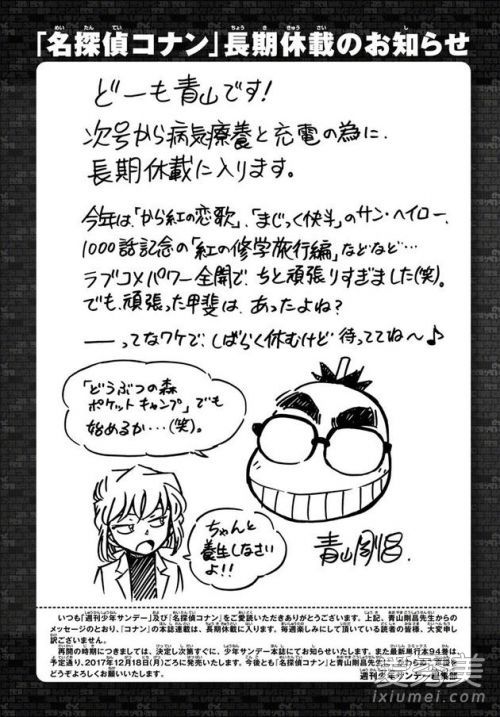 「名探偵コナン」長期休載のお知らせ
どーも青山です!
次号から病気療養と充電の為に、
長期休載に入ります。
今年は、「から紅の恋歌」、「まじっく快斗」のサン・ヘイロー、
1000話記念の「紅の修学旅行編」などなど…
ラブコメパワー全開で、ちと頑張りすぎました(笑)。
でも、頑張った甲斐は、あったよね?
――ってなワケで、しばらく休むけど待っててね〜♪
「どうぶつの森
ポケットキャンプ」でも
始めるか…(笑)。
ちゃんと
養生しなさい
よ!!
青山剛昌
いつも『週刊少年サンデー』及び『名探偵コナン』をご愛読いただきありがとうございます。上記、青山剛昌先生からの
メッセージのとおり、『コナン』の本誌連載は、長期休載に入ります。毎週楽しみにして頂いている読者の皆様、大変申し
訳ございません。
再開の時期につきましては、決定し次第すぐに、少年サンデー本誌にてお知らせいたします。また最新単行本94巻は、
予定通り、2017年12月18日(月)ごろに発売いたします。今後とも『名探偵コナン』と青山剛昌先生
どうぞよろしくお願いいたします。
週刊少年サンデー編集部
ixiumei.com